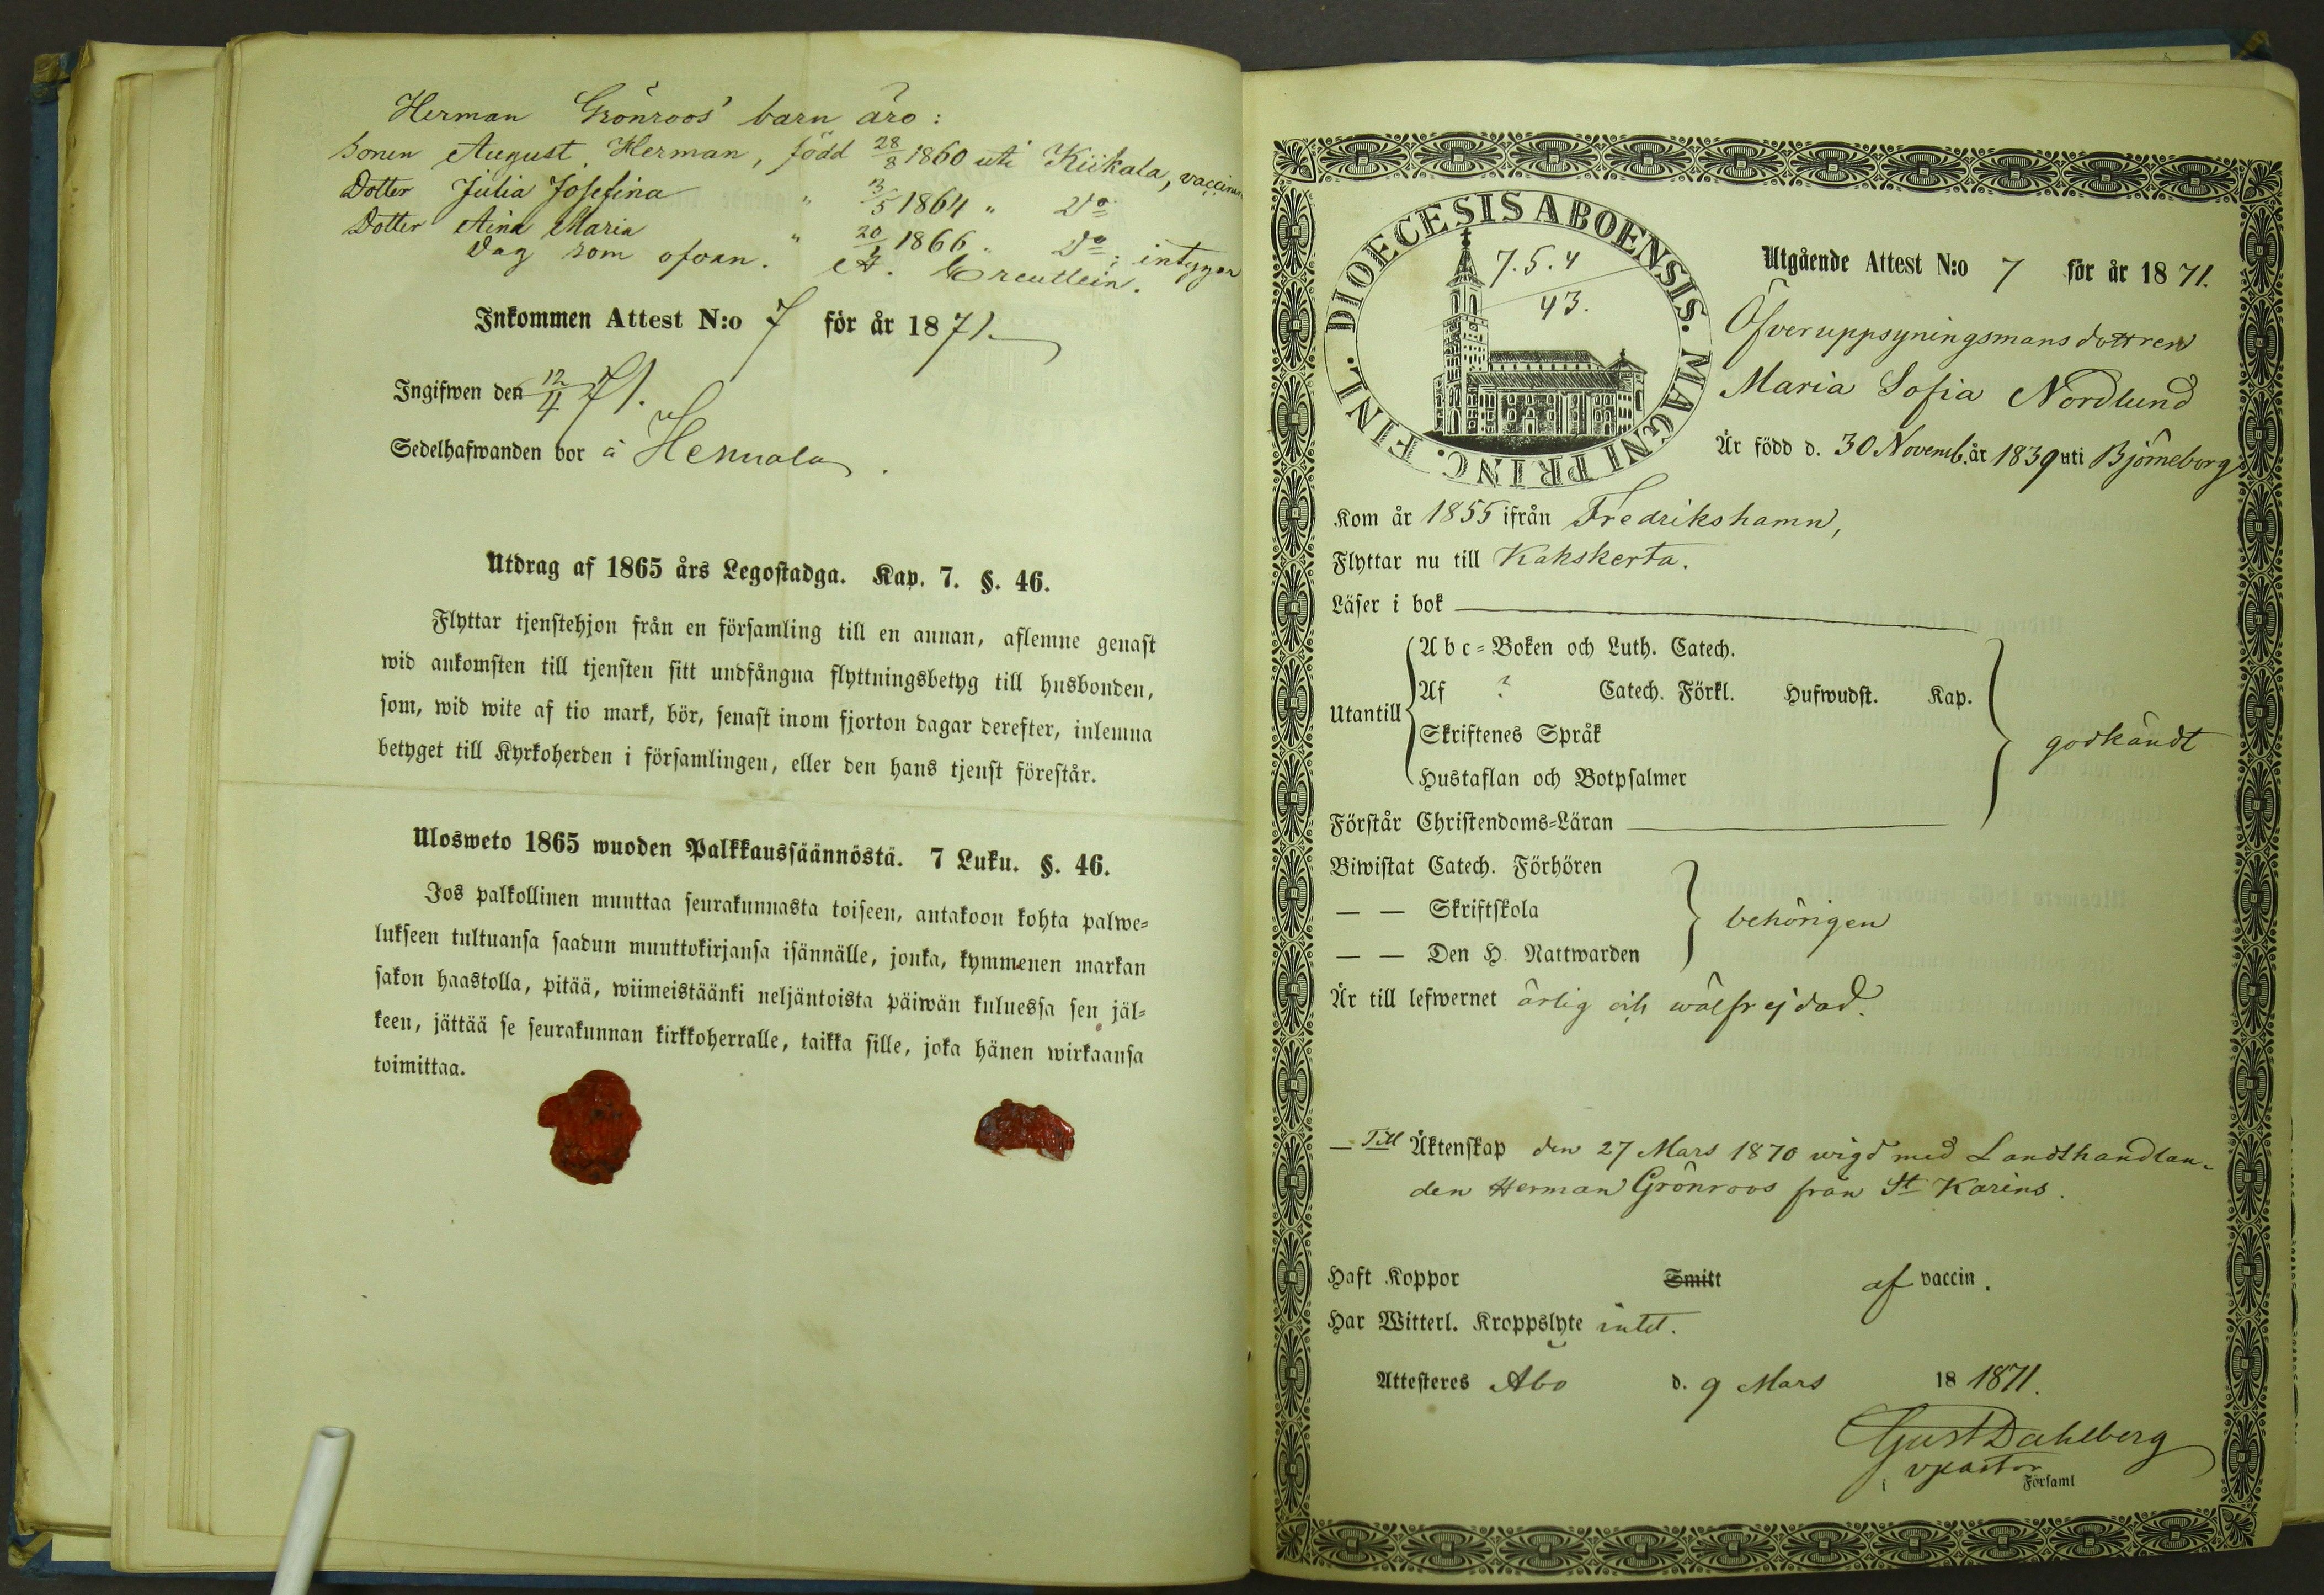 Herman Grönroos' barn äro:
Sonen August Herman, född 28/8 1860 uti Kiikala,
Dotter Julia Josefina " 13/5 1864 " D:o
Dotter Aina Maria " 20/1 1866 " D:o; intygar
Dag som ofvan. A. Creutlein.
Inkommen Attest N:o 7 för år 1871
Ingifwen den 12/4 71.
Sedelhafwanden bor å Hennala.
Utdrag af 1865 års Legostadga. Kap. 7. §. 46.
Flyttar tjenstehjon från en församling till en annan, aflemne genast
wid ankomsten till tjensten sitt undfångna flyttningsbetyg till husbonden,
som, wid wite af tio mark, bör, senast inom fjorton dagar derefter, inlemna
betyget till Kyrkoherden i församlingen, eller den hans tjenst förestår.
Ulosweto 1865 wuoden Palkkaussäännöstä. 7 Luku. §. 46.
Jos palkollinen muuttaa seurakunnasta toiseen, antakoon kohta palwe-
lukseen tultuansa saadun muuttokirjansa isännälle, jonka, kymmenen markan
sakon haastolla, pitää, wiimeistäänki neljäntoista päiwän kuluessa sen jäl-
keen, jättää se seurakunnan kirkkoherralle, taikka sille, joka hänen wirkaansa
toimittaa.
DIOECESIS ABOENSIS. MAGNI PRINC. FINL.
7.5.4
43.
Utgående Attest N:o 7 för år 1871.
Öfveruppsyningsmansdottren
Maria Sofia Nordlund
Är född d. 30 Novemb. år 1839 uti Björneborg
Kom år 1855 ifrån Fredrikshamn,
Flyttar nu till Kakskerta.
Läser i bok
Utantill
A b c-Boken och Luth. Catech.
Af ? Catech. Förkl. Hufwudst. Kap.
Skriftenes Språk
Hustaflan och Botpsalmer
godkändt
Förstår Christendoms-Läran
Biwistat Catech. Förhören
— — Skriftskola
— — Den H. Nattwarden
behörigen
Är till lefwernet ärlig och wälfrejdad.
— Till Äktenskap den 27 Mars 1870 wigd med Landthandlan-
den Herman Grönroos från St Karins.
Haft Koppor Smitt af vaccin.
Har Witterl. Kroppslyte intet.
Attesteres Åbo d. 9 Mars 18 1871.
Gust Dahlberg
v pastor
i Församl